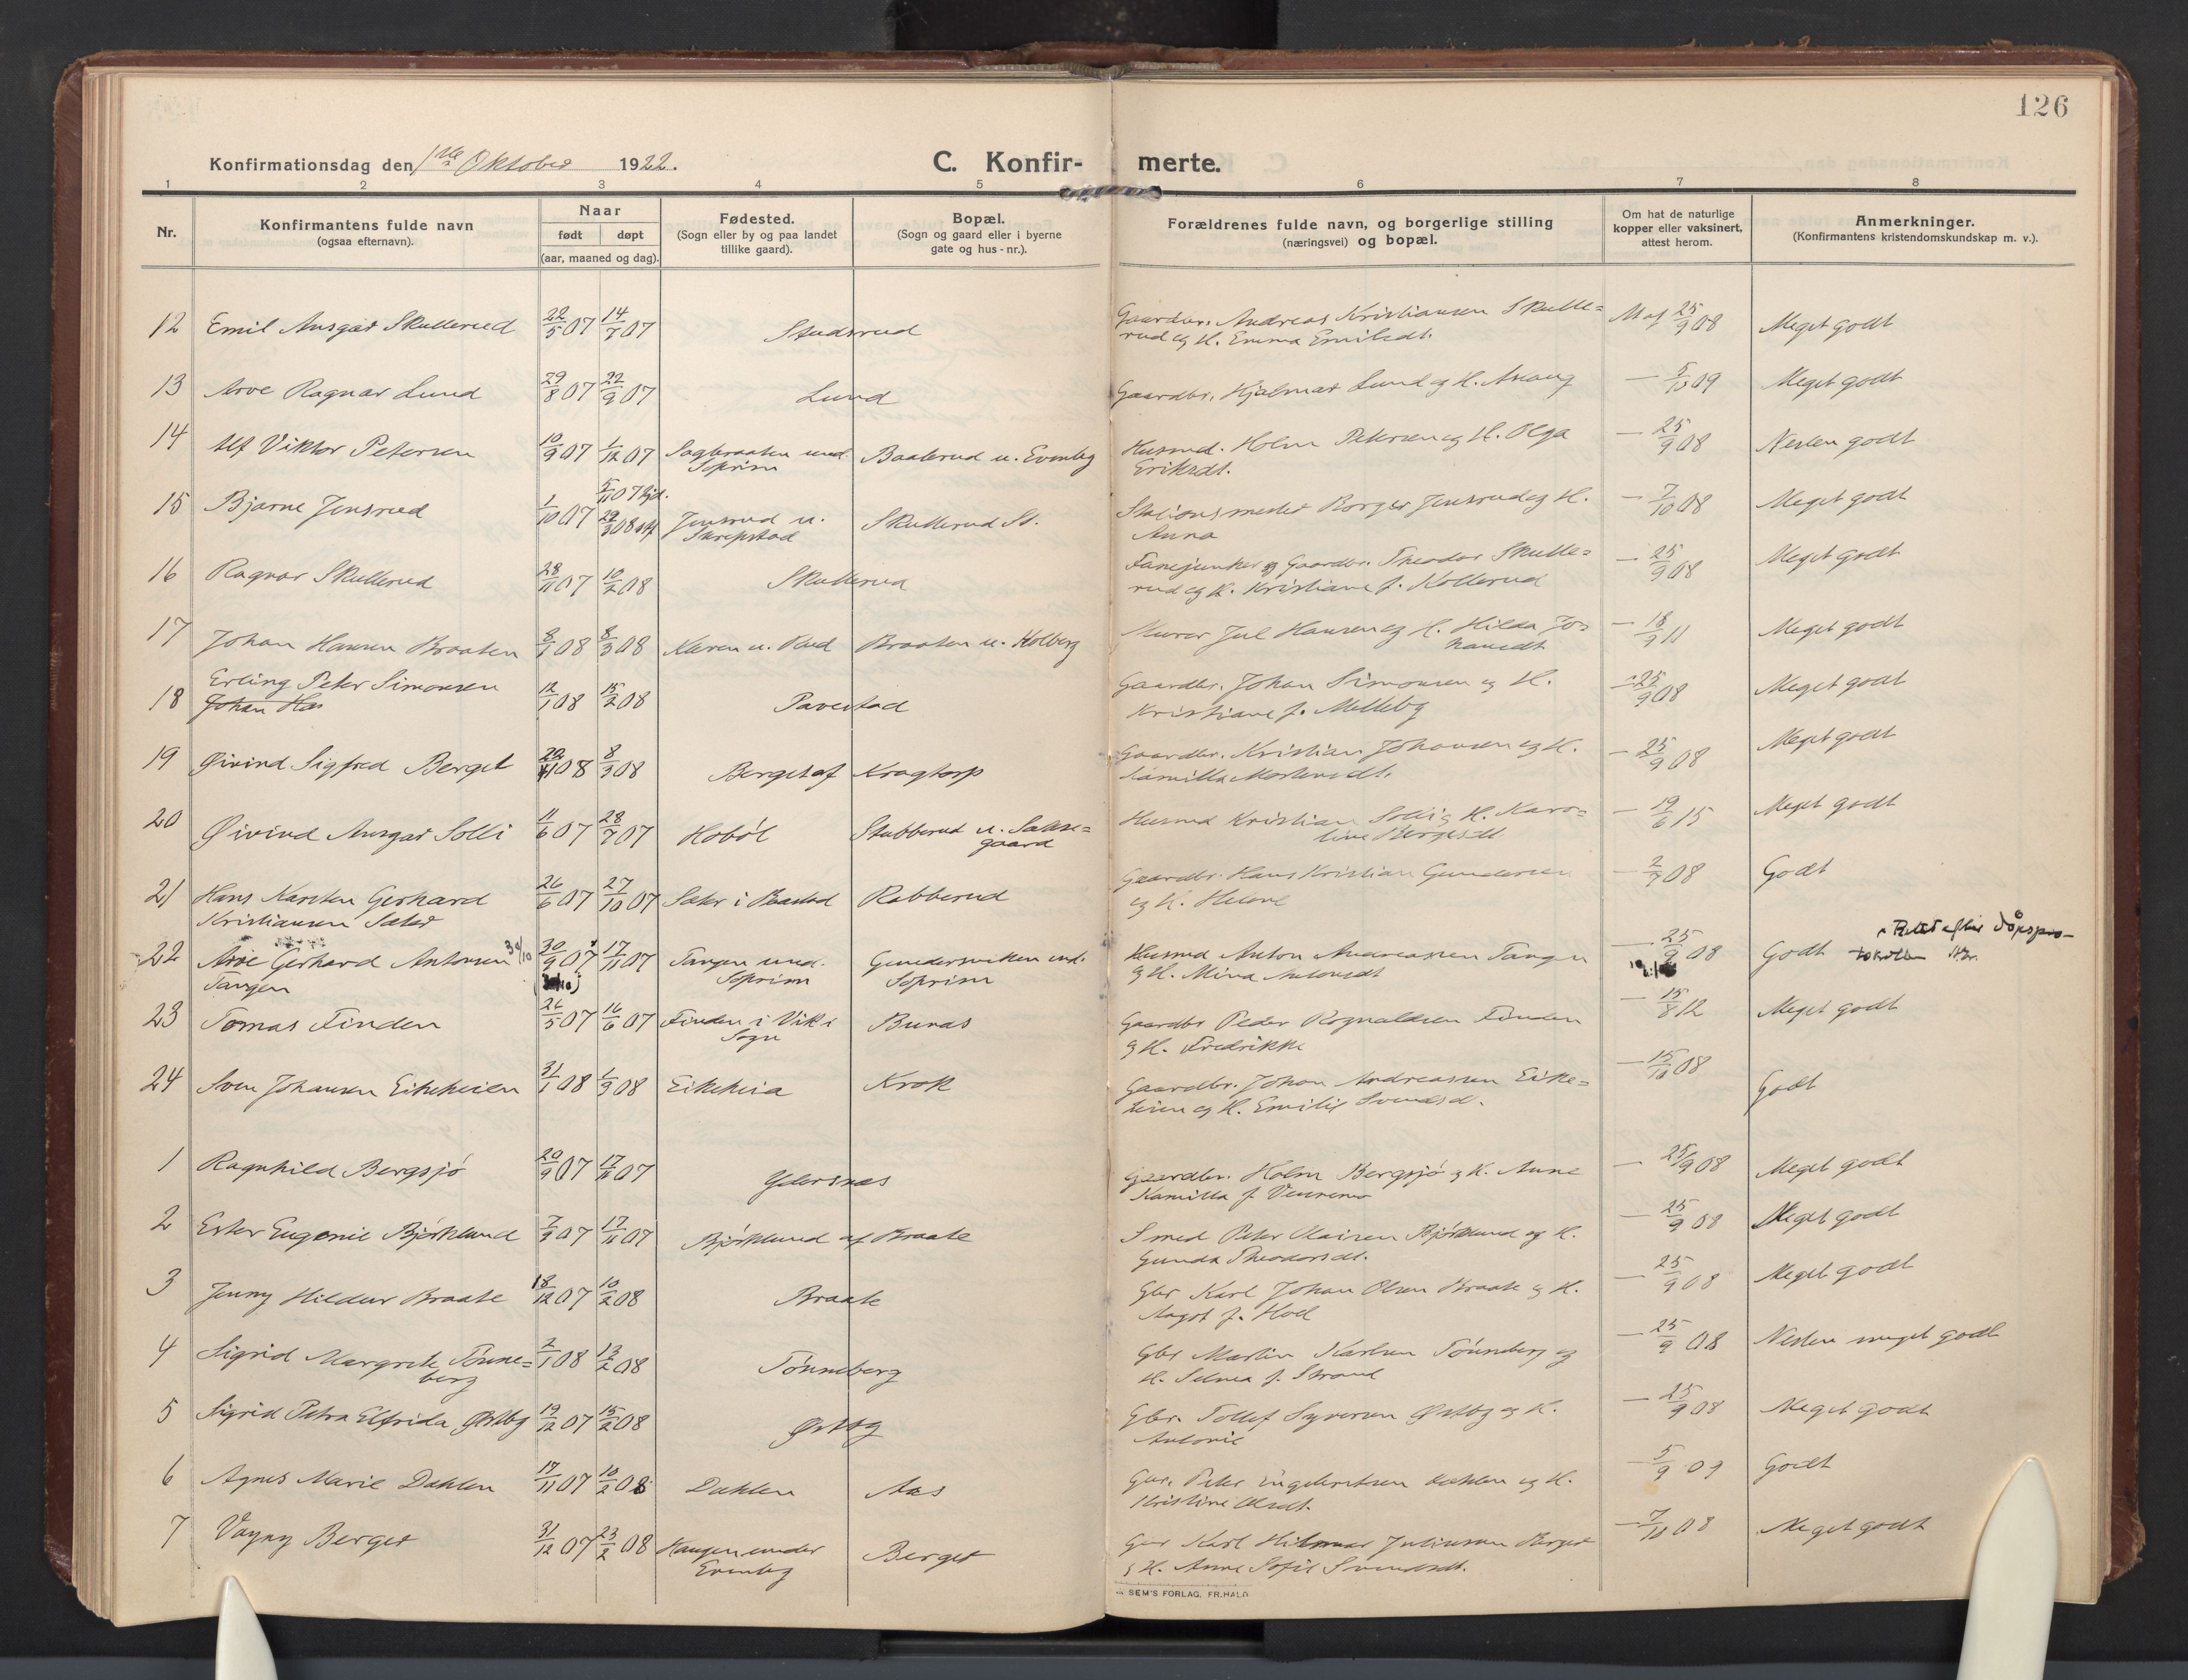 126
Konfirmationsdag den 1ste Oktober 1922.
C. Konfir-
merte.
1 2 3 4 5 6 7 8
Nr.
Konfirmantens fulde navn
(ogsaa efternavn).
Naar
født døpt
(aar, maaned og dag).
Fødested.
(Sogn eller by og paa landet
tillike gaard).
Bopæl.
(Sogn og gaard eller i byerne
gate og hus-nr.).
Forældrenes fulde navn, og borgerlige stilling
(næringsvei) og bopæl.
Om hat de naturlige
kopper eller vaksinert,
attest herom.
Anmerkninger.
(Konfirmantens kristendomskundskap m. v.).
12 Emil Ansgar Skullerud 22/5 07 14/7 07 Studsrud Gaardbr. Andreas Kristiansen Skulle=
rud og H. Emma Emilsdt. 25/9 08 Meget godt
13 Arve Ragnar Lund 29/8 07 22/9 07 Lund Gaardbr. Hjalmar Lund og H. Aslaug — 5/10 09 Meget godt
14 Alf Viktor Petersen 10/9 07 1/12 07 Sagbraaten und.
Soprim
Baalerud u. Evenby Husmd. Holm Petersen og H. Olga
Eriksdt.
— 25/9 08 Nesten godt
15 Bjarne Jensrud 1/10 07 5/11 07 hjd.
29/3 08 stf
Jensrud u.
Skrepstad
Skullerud St. Stationsmester Borger Jensrud og H.
Anna
— 7/10 08 Meget godt
16 Ragnar Skullerud 28/11 07 10/2 08 Skullerud Fanejunker og Gaardbr. Theodor Skulle=
rud og H. Kristiane f. Kollerud
— 25/9 08 Meget godt
17 Johan Hansen Braaten 8/1 08 8/3 08 Kæren u. Rud Braaten u. Holberg Murer Jul Hansen og H. Hilda Jo=
hansdt
— 18/9 11 Meget godt
Erling Peter Simonsen
18 Johan Has 12/1 08 15/2 08 Pavestad Gaardbr. Johan Simonsen og H.
Kristiane f. Melleby
— 25/9 08 Meget godt
19 Øivind Sigfred Berget 08 8/3 08 Berget af Kragtorp Gaardbr. Kristian Johansen og H.
Kamilla Mortensdt.
— 25/9 08 Meget godt
20 Øivind Ansgar Solli 11/6 07 28/7 07 Hobøl Stubberud u. Sakse=
gaard
Husmd Kristian Solli og H. Karo=
line Børgesdt
— 19/6 15 Meget godt
21 Hans Karsten Gerhard
Kristiansen Sæter
26/6 07 27/10 07 Sæter i Baastad Rabberud Gaardbr. Hans Kristian Gundersen
og H. Helene
— 2/7 08 Godt
22 Arve Gerhard Antonsen
Tangen
30/10 30/9 07 17/11 07 Tangen und.
Soprim
Gundersviken und.
Soprim
Husmd Anton Andreassen Tangen
og H. Mina Antonsdt
— 25/9 08 Godt Rettet efter Dåpspro-
tokollen
23 Tomas Finden 26/5 07 16/6 07 Finden i Vik i
Sogn
Bunæs Gaardbr Peder Rognaldsen Finden
og H. Fredrikke
— 15/8 12 Meget godt
24 Sven Johansen Eikeheien 31/1 08 1/3 08 Eikeheia Krok Gaardbr. Johan Andreassen Eike=
heien og H. Emilie Svendsd.
— 15/10 08 Godt
1 Ragnhild Bergsjø 20/9 07 17/11 07 Ydersnes Gaardbr. Holm Bergsjø og H. Anne
Kamilla f. Vennemo
— 25/9 08 Meget godt
2 Ester Eugenie Bjørklund 7/9 07 17/11 07 Bjørklund af Braate Smed Peter Olaisen Bjørklund og H.
Gunda Theodorsdt.
— 25/9 08 Meget godt
3 Jenny Hildur Braate 18/12 07 10/2 08 Braate Gbr Karl Johan Olsen Braate og H.
Aagot f. Hoel
— 25/9 08 Meget godt
4 Sigrid Margrete Tønne=
berg
7/1 08 13/2 08 Tønneberg Gbr Martin Karlsen Tønneberg og
H. Selma f. Strand
— 25/9 08 Nesten meget godt
5 Sigrid Petra Elfrida Østby 19/12 07 15/2 08 Østby Gbr. Tollef Syversen Østby og H.
Antonie
— 25/9 08 Meget godt
6 Agnes Marie Dahlen 17/11 07 10/2 08 Dahlen Aas Gbr. Peter Engebretsen Dahlen og H.
Kristine Olsdt.
— 5/9 09 Godt
7 Vagny Berget 31/12 07 23/2 08 Haugen under
Evenby
Berget Gbr Karl Hilmar Juliussen Berget
og H. Anne Sofie Svendsdt.
— 7/10 08 Meget godt
SEM'S FORLAG, FR.HALD